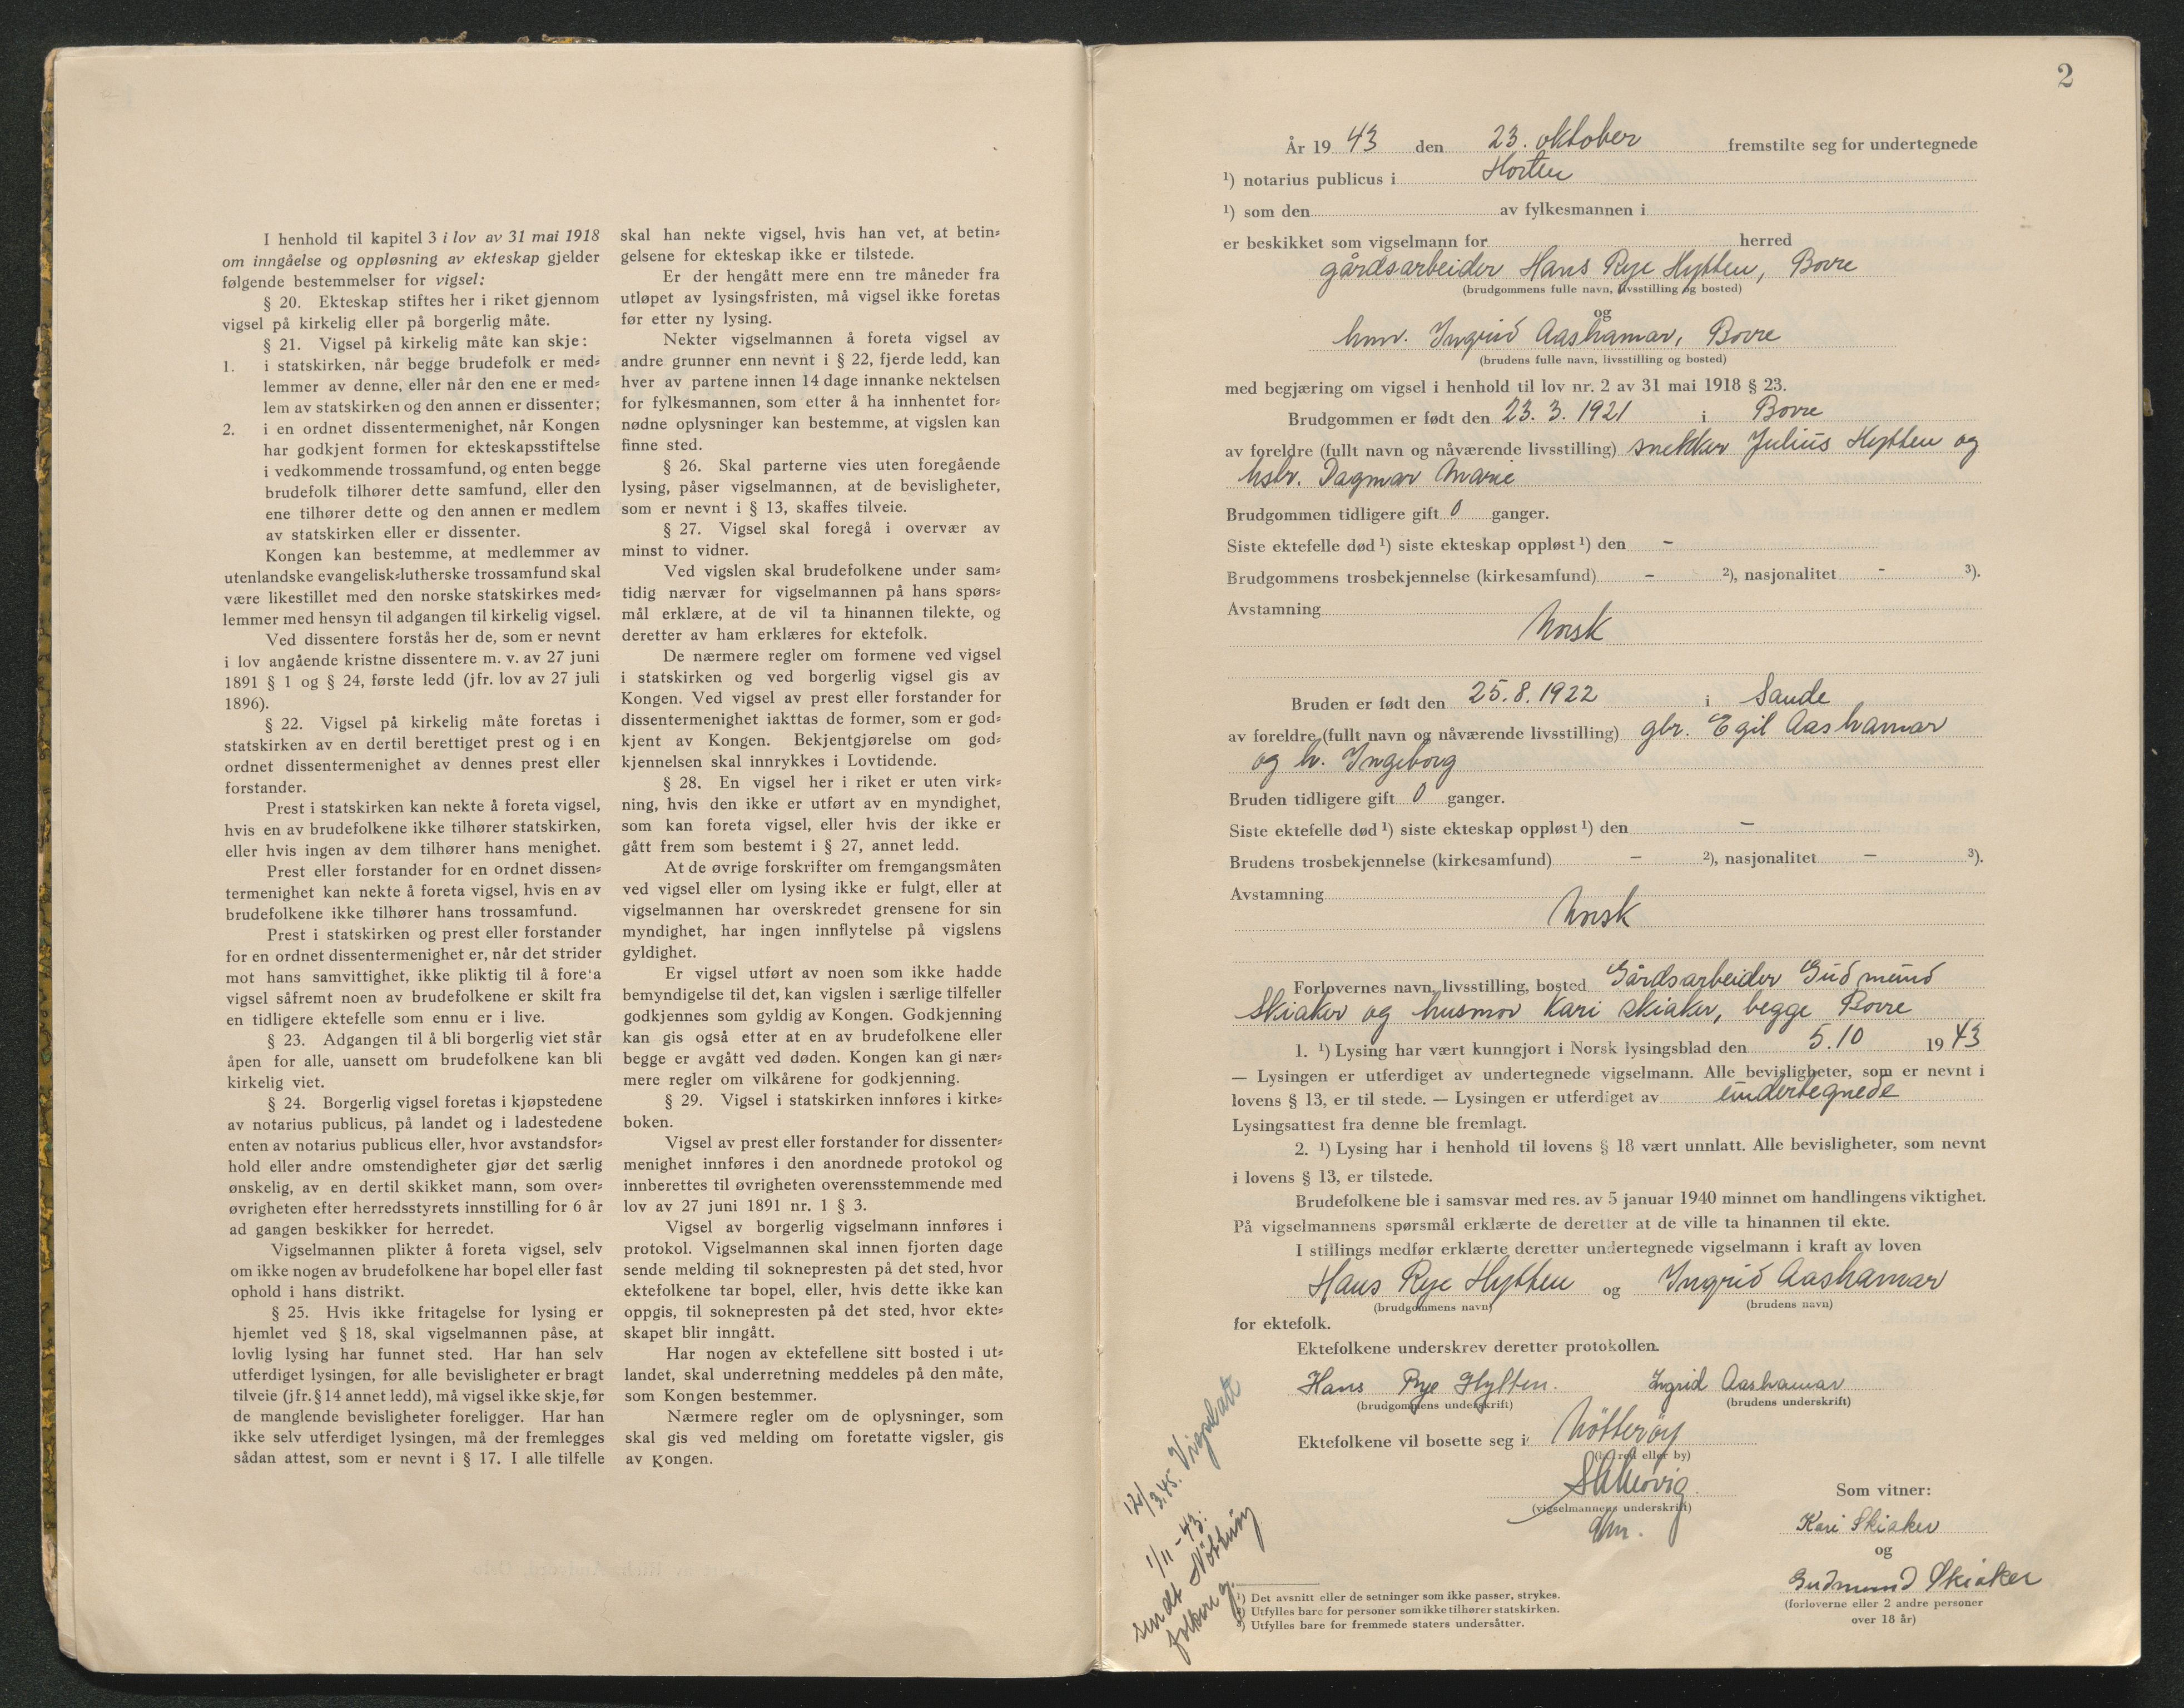 I henhold til kapitel 3 i lov av 31 mai 1918
om inngåelse og oppløsning av ekteskap gjelder
følgende bestemmelser for vigsel:
§ 20. Ekteskap stiftes her i riket gjennom
vigsel på kirkelig eller på borgerlig måte.
§ 21. Vigsel på kirkelig måte kan skje:
1. i statskirken, når begge brudefolk er med-
lemmer av denne, eller når den ene er med-
lem av statskirken og den annen er dissenter;
2. i en ordnet dissentermenighet, når Kongen
har godkjent formen for ekteskapsstiftelse
i vedkommende trossamfund, og enten begge
brudefolk tilhører dette samfund, eller den
ene tilhører dette og den annen er medlem
av statskirken eller er dissenter.
Kongen kan bestemme, at medlemmer av
utenlandske evangelisk-lutherske trossamfund skal
være likestillet med den norske statskirkes med-
lemmer med hensyn til adgangen til kirkelig vigsel.
Ved dissentere forstås her de, som er nevnt
i lov angående kristne dissentere m. v. av 27 juni
1891 § 1 og § 24, første ledd (jfr. lov av 27 juli
1896).
§ 22. Vigsel på kirkelig måte foretas i
statskirken av en dertil berettiget prest og i en
ordnet dissentermenighet av dennes prest eller
forstander.
Prest i statskirken kan nekte å foreta vigsel,
hvis en av brudefolkene ikke tilhører statskirken,
eller hvis ingen av dem tilhører hans menighet.
Prest eller forstander for en ordnet dissen-
termenighet kan nekte å foreta vigsel, hvis en av
brudefolkene ikke tilhører hans trossamfund.
Prest i statskirken og prest eller forstander
for en ordnet dissentermenighet er, når det strider
mot hans samvittighet, ikke pliktig til å fore'a
vigsel såfremt noen av brudefolkene er skilt fra
en tidligere ektefelle som ennu er i live.
§ 23. Adgangen til å bli borgerlig viet står
åpen for alle, uansett om brudefolkene kan bli
kirkelig viet.
§ 24. Borgerlig vigsel foretas i kjøpstedene
av notarius publicus, på landet og i ladestedene
enten av notarius publicus eller, hvor avstandsfor-
hold eller andre omstendigheter gjør det særlig
ønskelig, av en dertil skikket mann, som over-
øvrigheten efter herredsstyrets innstilling for 6 år
ad gangen beskikker for herredet.
Vigselmannen plikter å foreta vigsel, selv
om ikke nogen av brudefolkene har bopel eller fast
ophold i hans distrikt.
§ 25. Hvis ikke fritagelse for lysing er
hjemlet ved § 18, skal vigselmannen påse, at
lovlig lysing har funnet sted. Har han selv
utferdiget lysingen, før alle bevisligheter er bragt
tilveie (jfr. § 14 annet ledd), må vigsel ikke skje, før
de manglende bevisligheter foreligger. Har han
ikke selv utferdiget lysingen, må der fremlegges
sådan attest, som er nevnt i § 17. I alle tilfelle
skal han nekte vigsel, hvis han vet, at betin-
gelsene for ekteskap ikke er tilstede.
Er der hengått mere enn tre måneder fra
utløpet av lysingsfristen, må vigsel ikke foretas
før etter ny lysing.
Nekter vigselmannen å foreta vigsel av
andre grunner enn nevnt i § 22, fjerde ledd, kan
hver av partene innen 14 dage innanke nektelsen
for fylkesmannen, som etter å ha innhentet for-
nødne oplysninger kan bestemme, at vigslen kan
finne sted.
§ 26. Skal parterne vies uten foregående
lysing, påser vigselmannen, at de bevisligheter,
som er nevnt i § 13, skaffes tilveie.
§ 27. Vigsel skal foregå i overvær av
minst to vidner.
Ved vigslen skal brudefolkene under sam-
tidig nærvær for vigselmannen på hans spørs-
mål erklære, at de vil ta hinannen tilekte, og
deretter av ham erklæres for ektefolk.
De nærmere regler om formene ved vigsel
i statskirken og ved borgerlig vigsel gis av
Kongen. Ved vigsel av prest eller forstander for
dissentermenighet iakttas de former, som er god-
kjent av Kongen. Bekjentgjørelse om god-
kjennelsen skal innrykkes i Lovtidende.
§ 28. En vigsel her i riket er uten virk-
ning, hvis den ikke er utført av en myndighet,
som kan foreta vigsel, eller hvis der ikke er
gått frem som bestemt i § 27, annet ledd.
At de øvrige forskrifter om fremgangsmåten
ved vigsel eller om lysing ikke er fulgt, eller at
vigselmannen har overskredet grensene for sin
myndighet, har ingen innflytelse på vigslens
gyldighet.
Er vigsel utført av noen som ikke hadde
bemyndigelse til det, kan vigslen i særlige tilfeller
godkjennes som gyldig av Kongen. Godkjenning
kan gis også etter at en av brudefolkene eller
begge er avgått ved døden. Kongen kan gi nær-
mere regler om vilkårene for godkjenning.
§ 29. Vigsel i statskirken innføres i kirke-
boken.
Vigsel av prest eller forstander for dissenter-
menighet innføres i den anordnede protokol og
innberettes til øvrigheten overensstemmende med
lov av 27 juni 1891 nr. 1 § 3.
Vigsel av borgerlig vigselmann innføres i
protokol. Vigselmannen skal innen fjorten dage
sende melding til soknepresten på det sted, hvor
ektefolkene tar bopel, eller, hvis dette ikke kan
oppgis, til soknepresten på det sted, hvor ekte-
skapet blir inngått.
Har nogen av ektefellene sitt bosted i ut-
landet, skal underretning meddeles på den måte,
som Kongen bestemmer.
Nærmere regler om de oplysninger, som
skal gis ved melding om foretatte vigsler, gis
av Kongen.
2
År 19 43 den 23. oktober fremstilte seg for undertegnede
¹) notarius publicus i Horten
¹) som den av fylkesmannen i
er beskikket som vigselmann for herred
gårdsarbeider Hans Rye Hytten, Borre
(brudgommens fulle navn, livsstilling og bosted)
og
hmr. Ingrid Aashamar, Borre
(brudens fulle navn, livsstilling og bosted)
med begjæring om vigsel i henhold til lov nr. 2 av 31 mai 1918 § 23.
Brudgommen er født den 23. 3. 1921 i Borre
av foreldre (fullt navn og nåværende livsstilling) snekker Julius Hytten og
hstr. Dagmar Marie
Brudgommen tidligere gift 0 ganger.
Siste ektefelle død ¹) siste ekteskap oppløst ¹) den -
Brudgommens trosbekjennelse (kirkesamfund) - ²), nasjonalitet - ³).
Avstamning
Norsk
Bruden er født den 25. 8. 1922 i Sande
av foreldre (fullt navn og nåværende livsstilling) gbr. Egil Aashamar
og h. Ingeborg
Bruden tidligere gift 0 ganger.
Siste ektefelle død ¹) siste ekteskap oppløst ¹) den -
Brudens trosbekjennelse (kirkesamfund) - ²), nasjonalitet - ³).
Avstamning
Norsk
Forlovernes navn, livsstilling, bosted Gårdsarbeider Gudmund
Skiaker og husmor Kari Skiaker, begge Borre
1. ¹) Lysing har vært kunngjort i Norsk lysingsblad den 5.10 19 43
— Lysingen er utferdiget av undertegnede vigselmann. Alle bevisligheter, som er nevnt i
lovens § 13, er til stede. — Lysingen er utferdiget av undertegnede
Lysingsattest fra denne ble fremlagt.
2. ¹) Lysing har i henhold til lovens § 18 vært unnlatt. Alle bevisligheter, som nevnt
i lovens § 13, er tilstede.
Brudefolkene ble i samsvar med res. av 5 januar 1940 minnet om handlingens viktighet.
På vigselmannens spørsmål erklærte de deretter at de ville ta hinannen til ekte.
I stillings medfør erklærte deretter undertegnede vigselmann i kraft av loven
Hans Rye Hytten og Ingrid Aashamar
(brudgommens navn) (brudens navn)
for ektefolk.
Ektefolkene underskrev deretter protokollen.
Hans Rye Hytten. Ingrid Aashamar
(brudgommens underskrift) (brudens underskrift)
Ektefolkene vil bosette seg i Nötteröy
(herred eller by)
(vigselmannens underskrift)
Som vitner:
Kari Skiaker
og
Gudmund Skiaker
(forloverne eller 2 andre personer
over 18 år)
12/3.45. Vigselatt
1/11-43:
sendt Nötteröy
folkereg.
¹) Det avsnitt eller de setninger som ikke passer, strykes.
²) Utfylles bare for personer som ikke tilhører statskirken.
³) Utfylles bare for fremmede staters undersåtter.